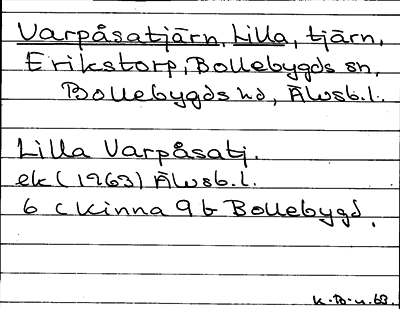 Varpåsatjärn, Lilla, tjärn,
Erikstorp, Bollebygds sn,
Bollebygds hd, Älvsb.l.
Lilla Varpåsatj.
ek (1963) Älvsb.l.
6 c Kinna 9 b Bollebygd.